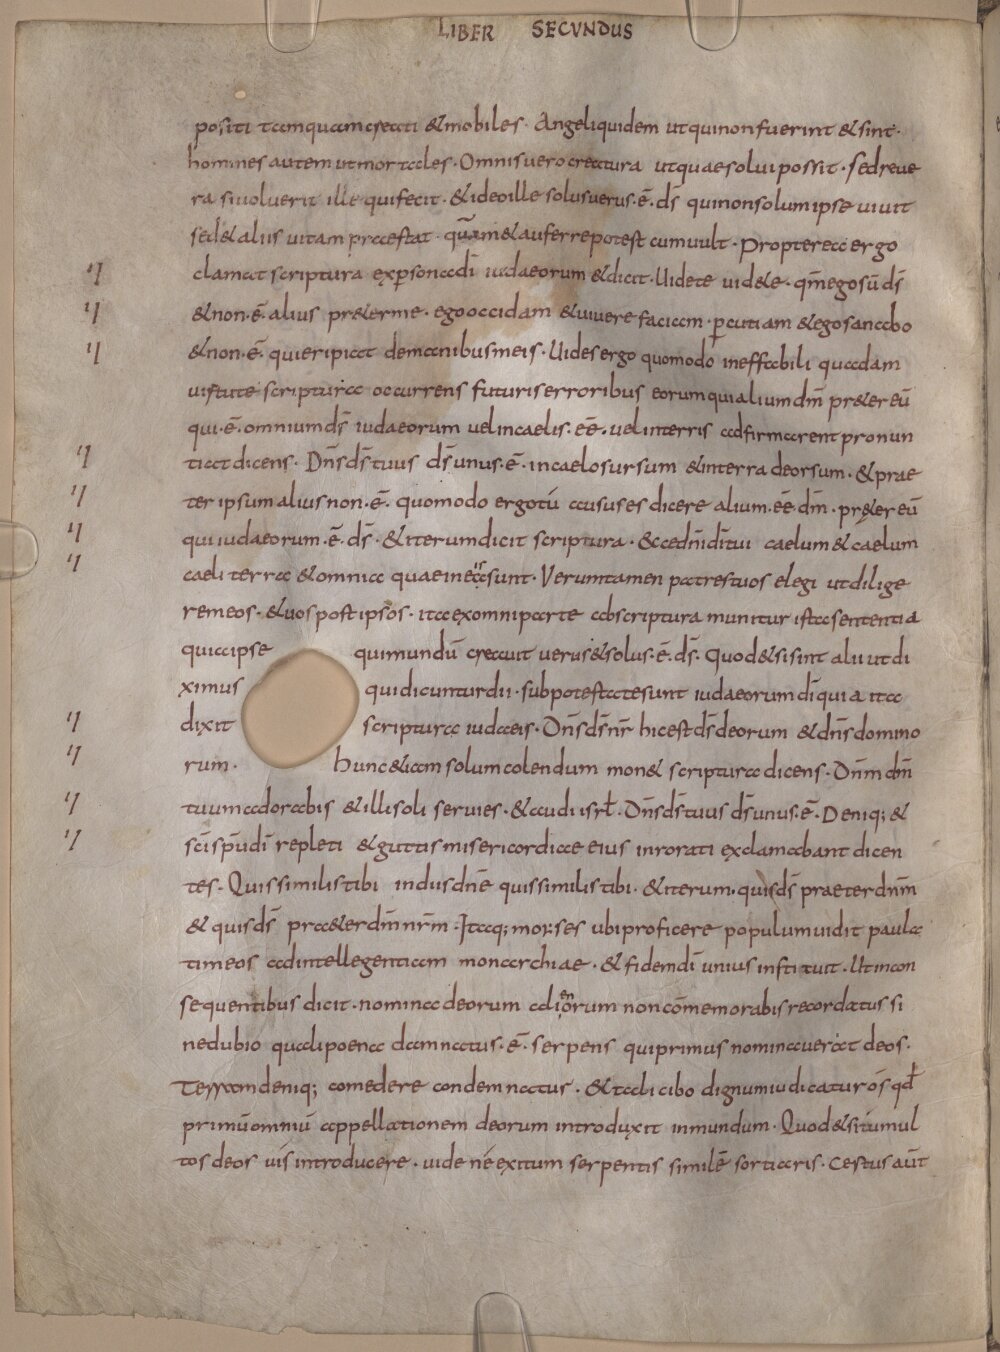 LIBER SECVNDUS
positi tamquam creati & mobiles · Angeli quidem ut qui non fuerint & sint ·
homines autem ut mortales · Omnis uero creatura ut quae solui possit · sed reue
ra si uoluerit ille qui fecit · & ideo ille solus uerus · ē · d̄s qui non solum ipse uiuit
sed & aliis uitam praestat · quam & auferre potest cum uult · Propterea ergo
clamat scriptura ex persona dī iudaeorum & dicit · Uidete uid&e · qm̄ ego sū d̄s
& non · ē · alius pr&er me · ego occidam & uiuere faciam · percutiam & ego sanabo
& non · ē · qui eripiat de manibus meis · Uides ergo quomodo ineffabili quadam
uirtute scriptura occurrens futuris erroribus eorum qui alium dm̄ pr&er eū
qui · ē · omnium d̄s iudaeorum uel in caelis · eē · uel in terris adfirmarent pronun
tiat dicens · Dn̄s d̄s tuus d̄s unus · ē · in caelo sursum & in terra deorsum · & prae
ter ipsum alius non · ē · quomodo ergo tú ausus es dicere alium · eē dm̄ · pr&er eū
qui iudaeorum · ē · d̄s · & iterum dicit scriptura · Ecce dn̄i dī tui caelum & caelum
caeli terra & omnia quae in eis sunt · Verumtamen patres tuos elegi ut dilige
rem eos · & uos post ipsos · ita ex omni parte ab scriptura munitur ista sententia
quia ipse qui mundū creauit uerus & solus · ē · d̄s · Quod & si sint alii ut di
ximus qui dicuntur dii · sub potestate sunt iudaeorum dī quia ita
dixit scriptura iudaeis · Dn̄s d̄s nr̄ hic est d̄s deorum & dn̄s domino
rum · Hunc &iam solum colendum mon& scriptura dicens · Dn̄m dm̄
tuum adorabis & illi soli seruies · & audi isrl̄ · Dn̄s d̄s tuus d̄s unus · ē · Deniq; &
sc̄i sp̄u dī repleti & guttis misericordiae eius inrorati exclamabant dicen
tes · Quis similis tibi in diis dn̄e quis similis tibi · & iterum · quis d̄s praeter dn̄m
& quis d̄s pra&er dm̄ nr̄m · Itaq; moyses ubi proficere populum uidit paula
tim eos ad intellegentiam monarchiae · & fidem dī unius instituit · Ut in con
sequentibus dicit · nomina deorum alienorum non cōmemorabis recordatus si
ne dubio quali poena damnatus · ē · serpens qui primus nominauerat deos ·
Terram deniq; comedere condemnatus · & tali cibo dignum iudicatur ós qd̄
primū omniū appellationem deorum introduxit in mundum · Quod & si tú mul
tos deos uis introducere · uide né exitum serpentis similē sortiaris · Certus aūt